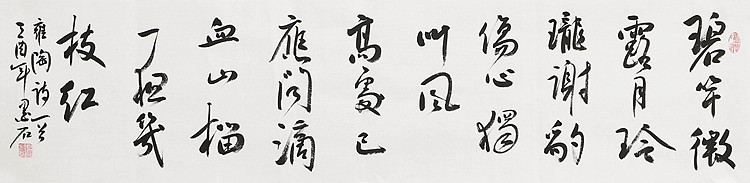 碧竿微
露月玲
瓏謝豹
傷心獨
叫風
高處已
應聞滴
血山榴
一夜幾
枝紅
雍陶詩一首
丁酉年墨石